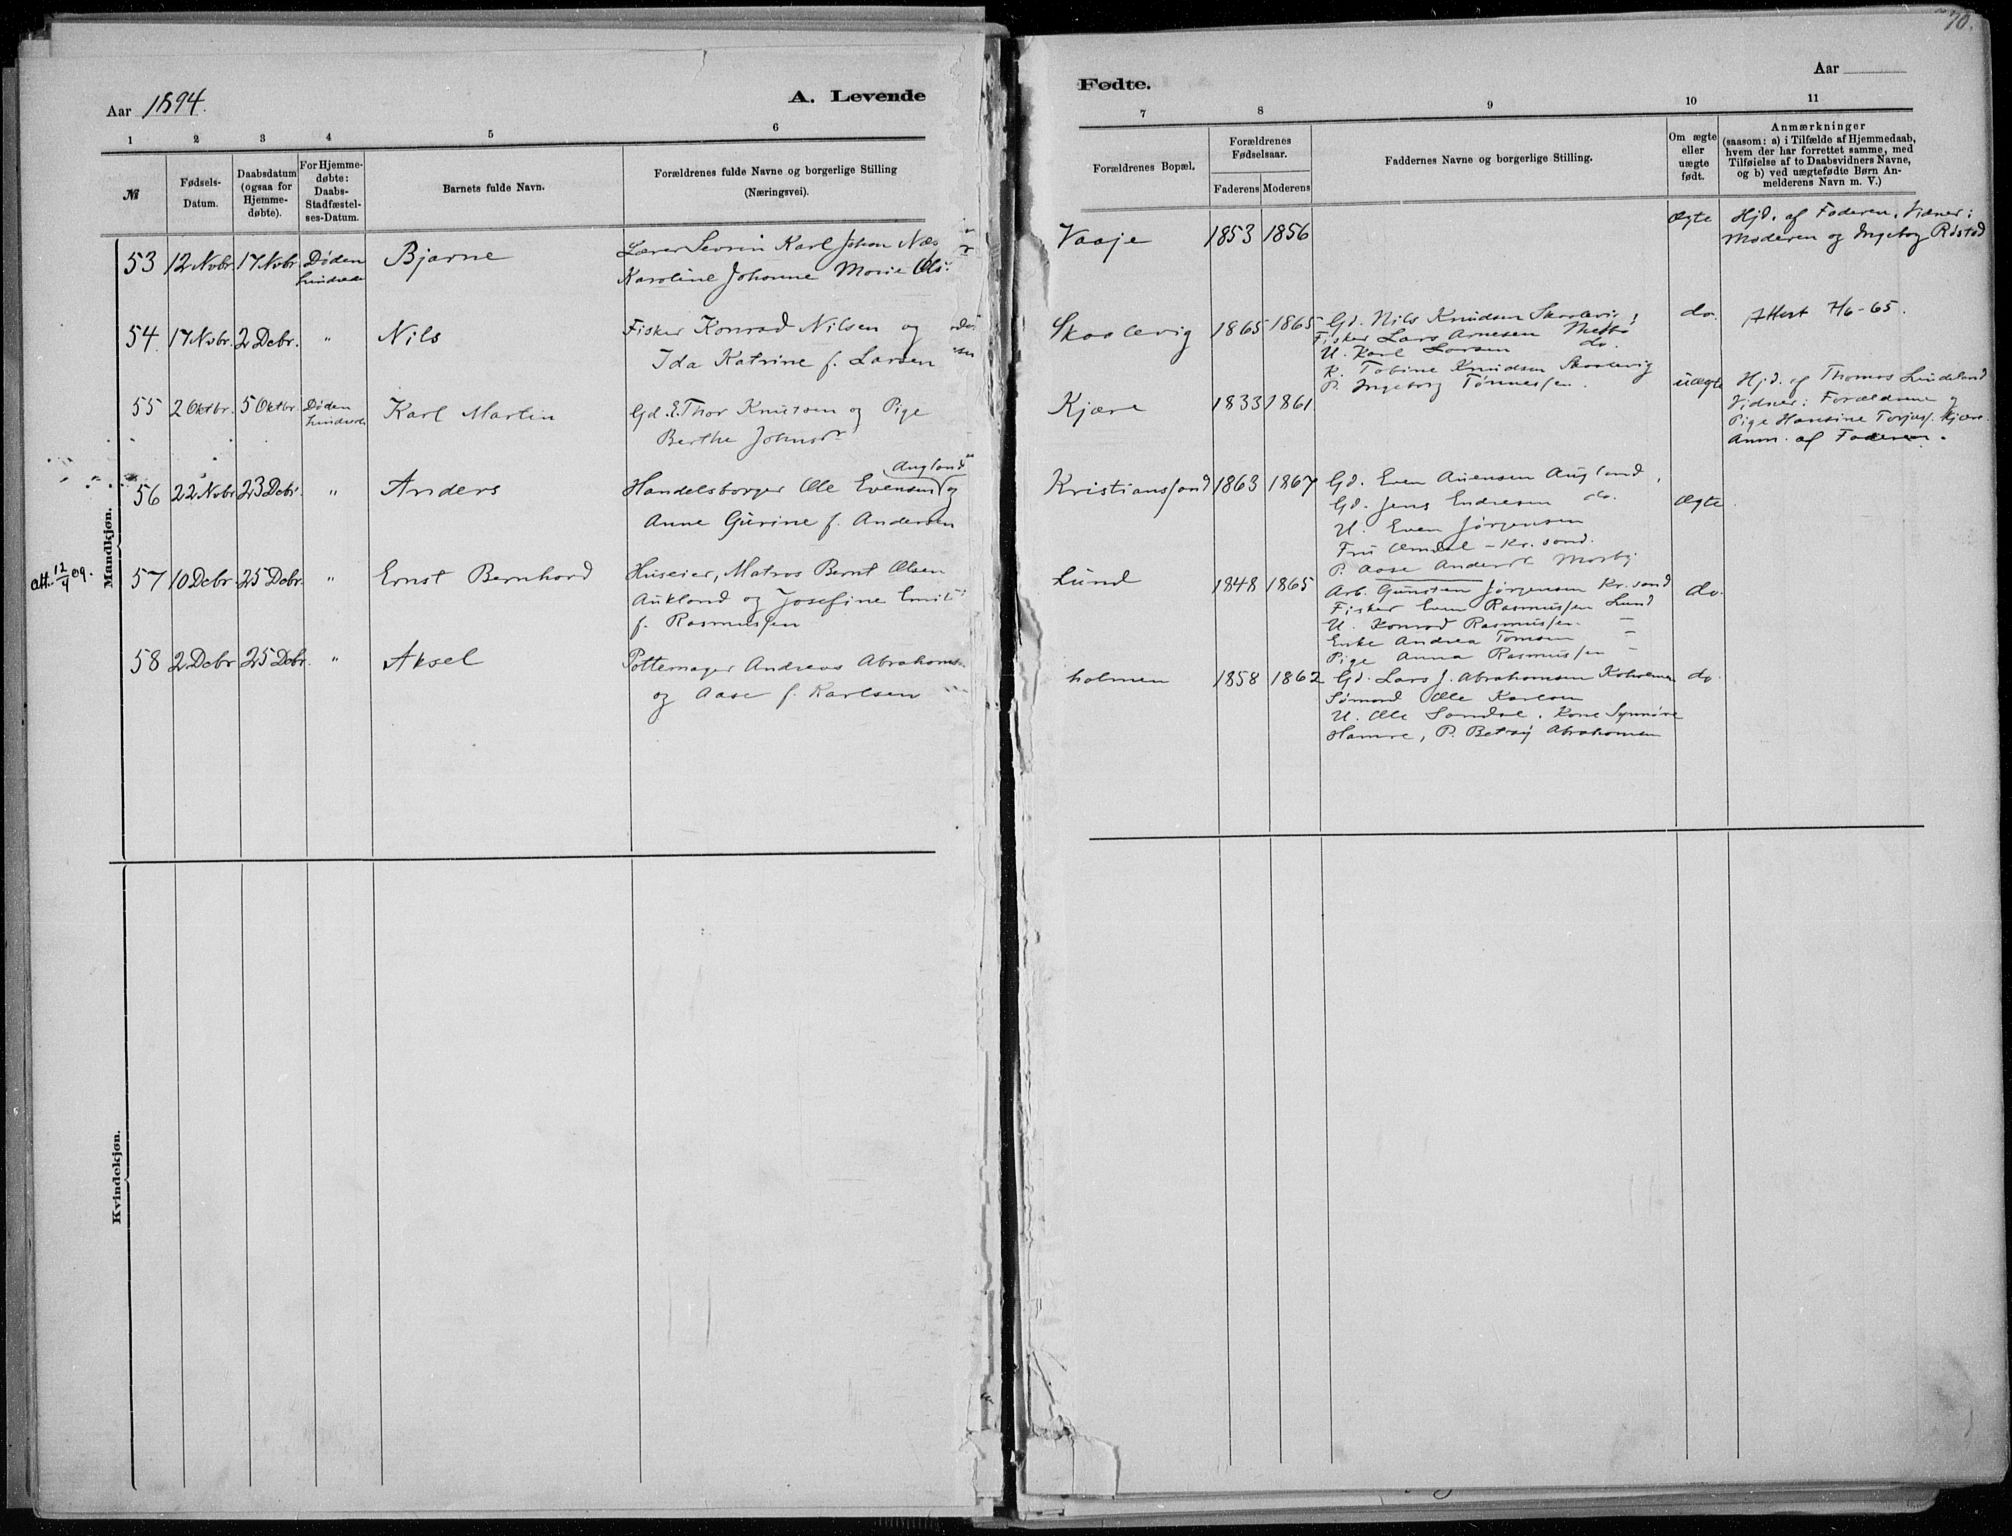 70.
Aar 1894.
A. Levende
Fødte.
Aar
1
2
3
4
5
6
7
8
9
10
11
№
Fødsels-
Datum.
Daabsdatum
(ogsaa for
Hjemme-
døbte).
For Hjemme-
døbte:
Daabs-
Stadfæstel-
ses-Datum.
Barnets fulde Navn.
Forældrenes fulde Navne og borgerlige Stilling
(Næringsvei).
Forældrenes Bopæl.
Forældrenes
Fødselsaar.
Faderens Moderens
Faddernes Navne og borgerlige Stilling.
Om ægte
eller
uægte
født.
Anmærkninger
(saasom: a) i Tilfælde af Hjemmedaab,
hvem der har forrettet samme, med
Tilføielse af to Daabsvidners Navne,
og b) ved uægtefødte Børn An-
melderens Navn m. V.)
Mandkjøn.
53 12 Novbr 17 Novbr Døden
hindrede
Bjarne
Lærer Sevrin Karl Johan Næs
Karoline Johanne Marie Ols
Vaaje
1853 1856
Ægte
Hjd. af Faderen. Vidner:
Moderen og Ingeborg Røstad
54. 17 Novbr. 2 Debr. "
Nils
Fisker Konrad Nilsen og
Ida Katrine f. Larsen
Skaalevig
1865 1865
Gd. Nils Knudsen Skaalevig
Fisker Lars Arnesen
U. Karl Larsen do.
K. Tobine Knudsen Skaalevig
P. Ingeborg Tønnessen.
do.
Attest 7/6-65.
55 2 Oktbr. 5 Oktbr. Døden
hindrede
Karl Martin
Gd. E. Thor Knutsen og Pige
Berthe Johnsd.
Kjære
1833 1861
uægte
Hjd. af Thomas Lindeland
Vidner: Forældrene og
Pige Hansine Torjusf. Kjære.
Anm. af Faderen.
56 22 Novbr 23 Debr. "
Anders
Augland
Handelsborger Ole Evensen og
Anne Gurine f. Andersen
Kristianssand
1863 1867
Gd. Even Auensen Augland,
Gd. Jens Endresen do.
U. Even Jørgensen
Fru Omdal - Kr. sand.
P. Aase Andersd. Mosby
Ægte
att. 12/4 09.
57 10 Debr. 25 Debr. "
Ernst Bernhard
Huseier, Matros Bernt Olsen
Aukland og Josefine Emilie
f. Rasmussen
Lund
1848 1865
Arb. Gunsten Jørgensen Kr. sand
Fisker Even Rasmussen Lund
U. Konrad Rasmussen. -
Enke Andrea Tomsen -
Pige Anna Rasmussen -
do.
58 2 Debr 25 Debr. "
Aksel
Pottemager Andreas Abrahams
og Aase f. Karlsen
holmen
1858 1862
Gd. Lars J. Abrahamsen Koholmen
Sømand Ole Karlsen
U. Ole Sandal. Kone Synnøve
Hamre, P. Betsy Abrahamsen
do.
Kvindekjøn.